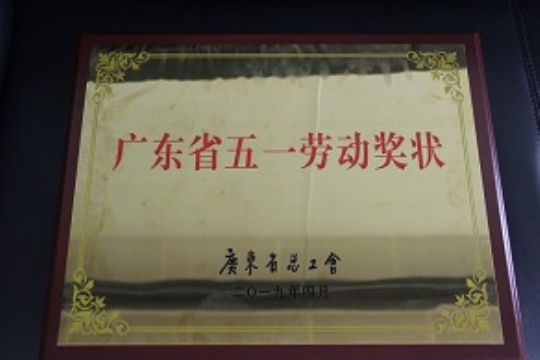 广东省五一劳动奖状
廣東省总工會
二〇一九年四月